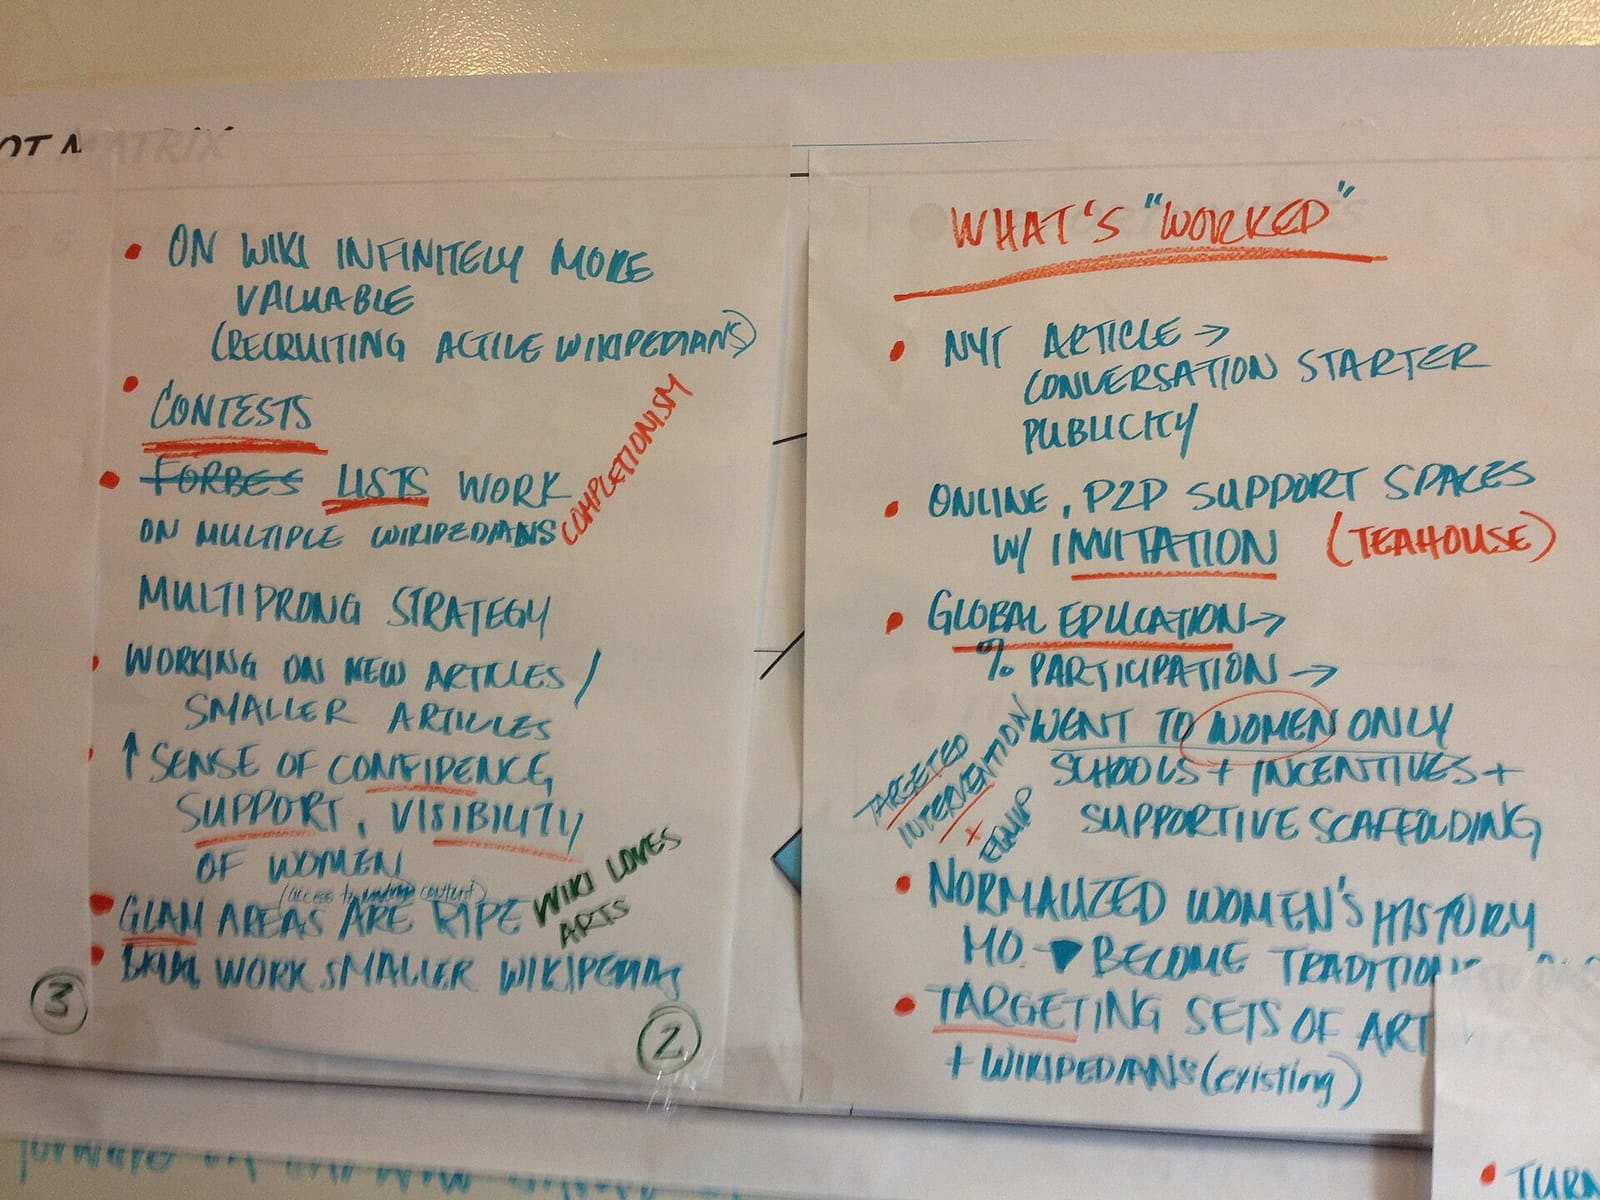 MATRIX
• ON WIKI INFINITELY MORE
VALUABLE
(RECRUITING ACTIVE WIKIPEDIANS)
• CONTESTS
• FORBES LISTS WORK
ON MULTIPLE WIKIPEDIANS
COMPLETIONISM
MULTIPRONG STRATEGY
• WORKING ON NEW ARTICLES /
SMALLER ARTICLES
• ↑ SENSE OF CONFIDENCE,
SUPPORT, VISIBILITY
OF WOMEN
(access to content)
• GLAM AREAS ARE RIPE
WIKI LOVES
ARTS
• WORK SMALLER WIKIPEDIAS
3
2
WHAT'S "WORKED"
• NYT ARTICLE →
CONVERSATION STARTER
PUBLICITY
• ONLINE, P2P SUPPORT SPACES
W/ INVITATION (TEAHOUSE)
• GLOBAL EDUCATION →
% PARTICIPATION →
WENT TO WOMEN ONLY
SCHOOLS + INCENTIVES +
SUPPORTIVE SCAFFOLDING
TARGETED
INTERVENTION
+ EQUIP
• NORMALIZED WOMEN'S HISTORY
MO. → BECOME TRADITION
• TARGETING SETS OF ART
+ WIKIPEDIANS (existing)
• TURN